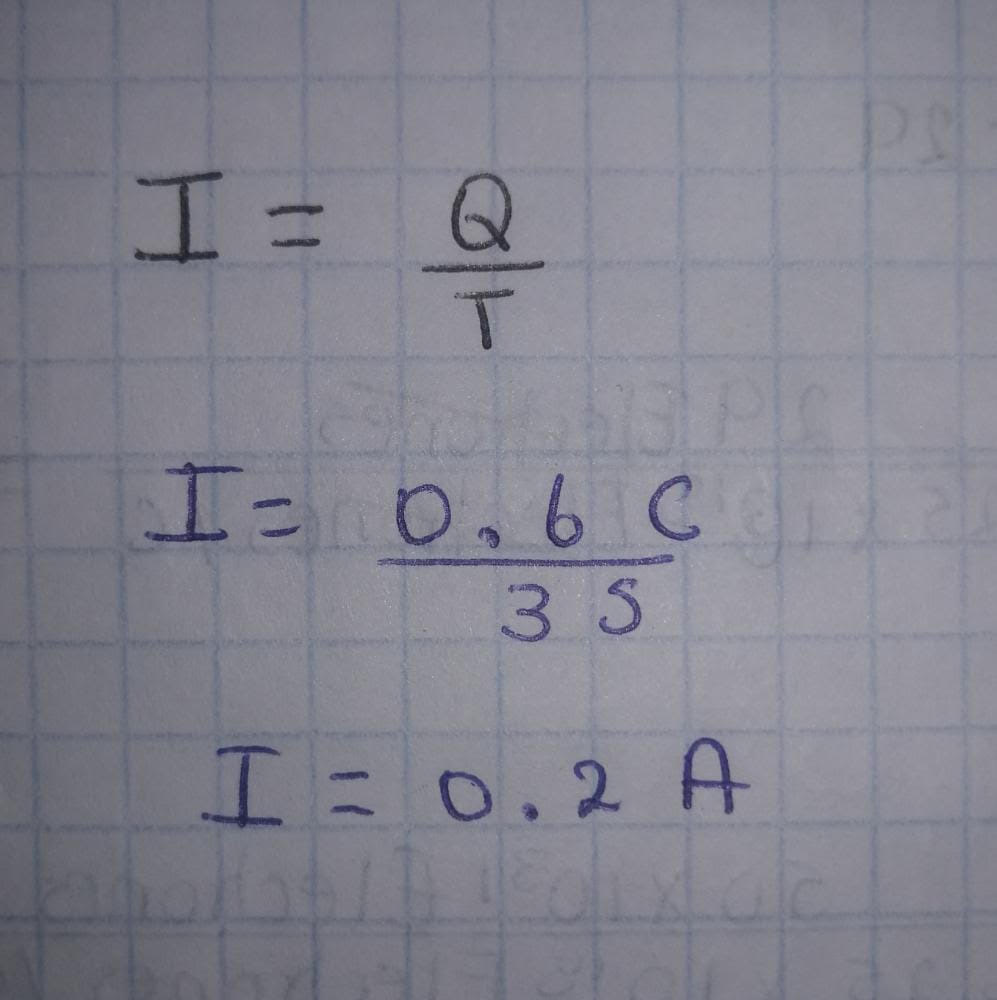 I = Q/T
I = 0.6 C / 3 S
I = 0.2 A